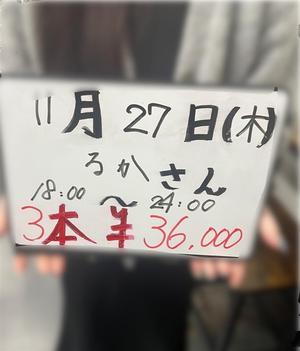 11月27日(木)
ろかさん
18:00〜24:00
3本¥36,000